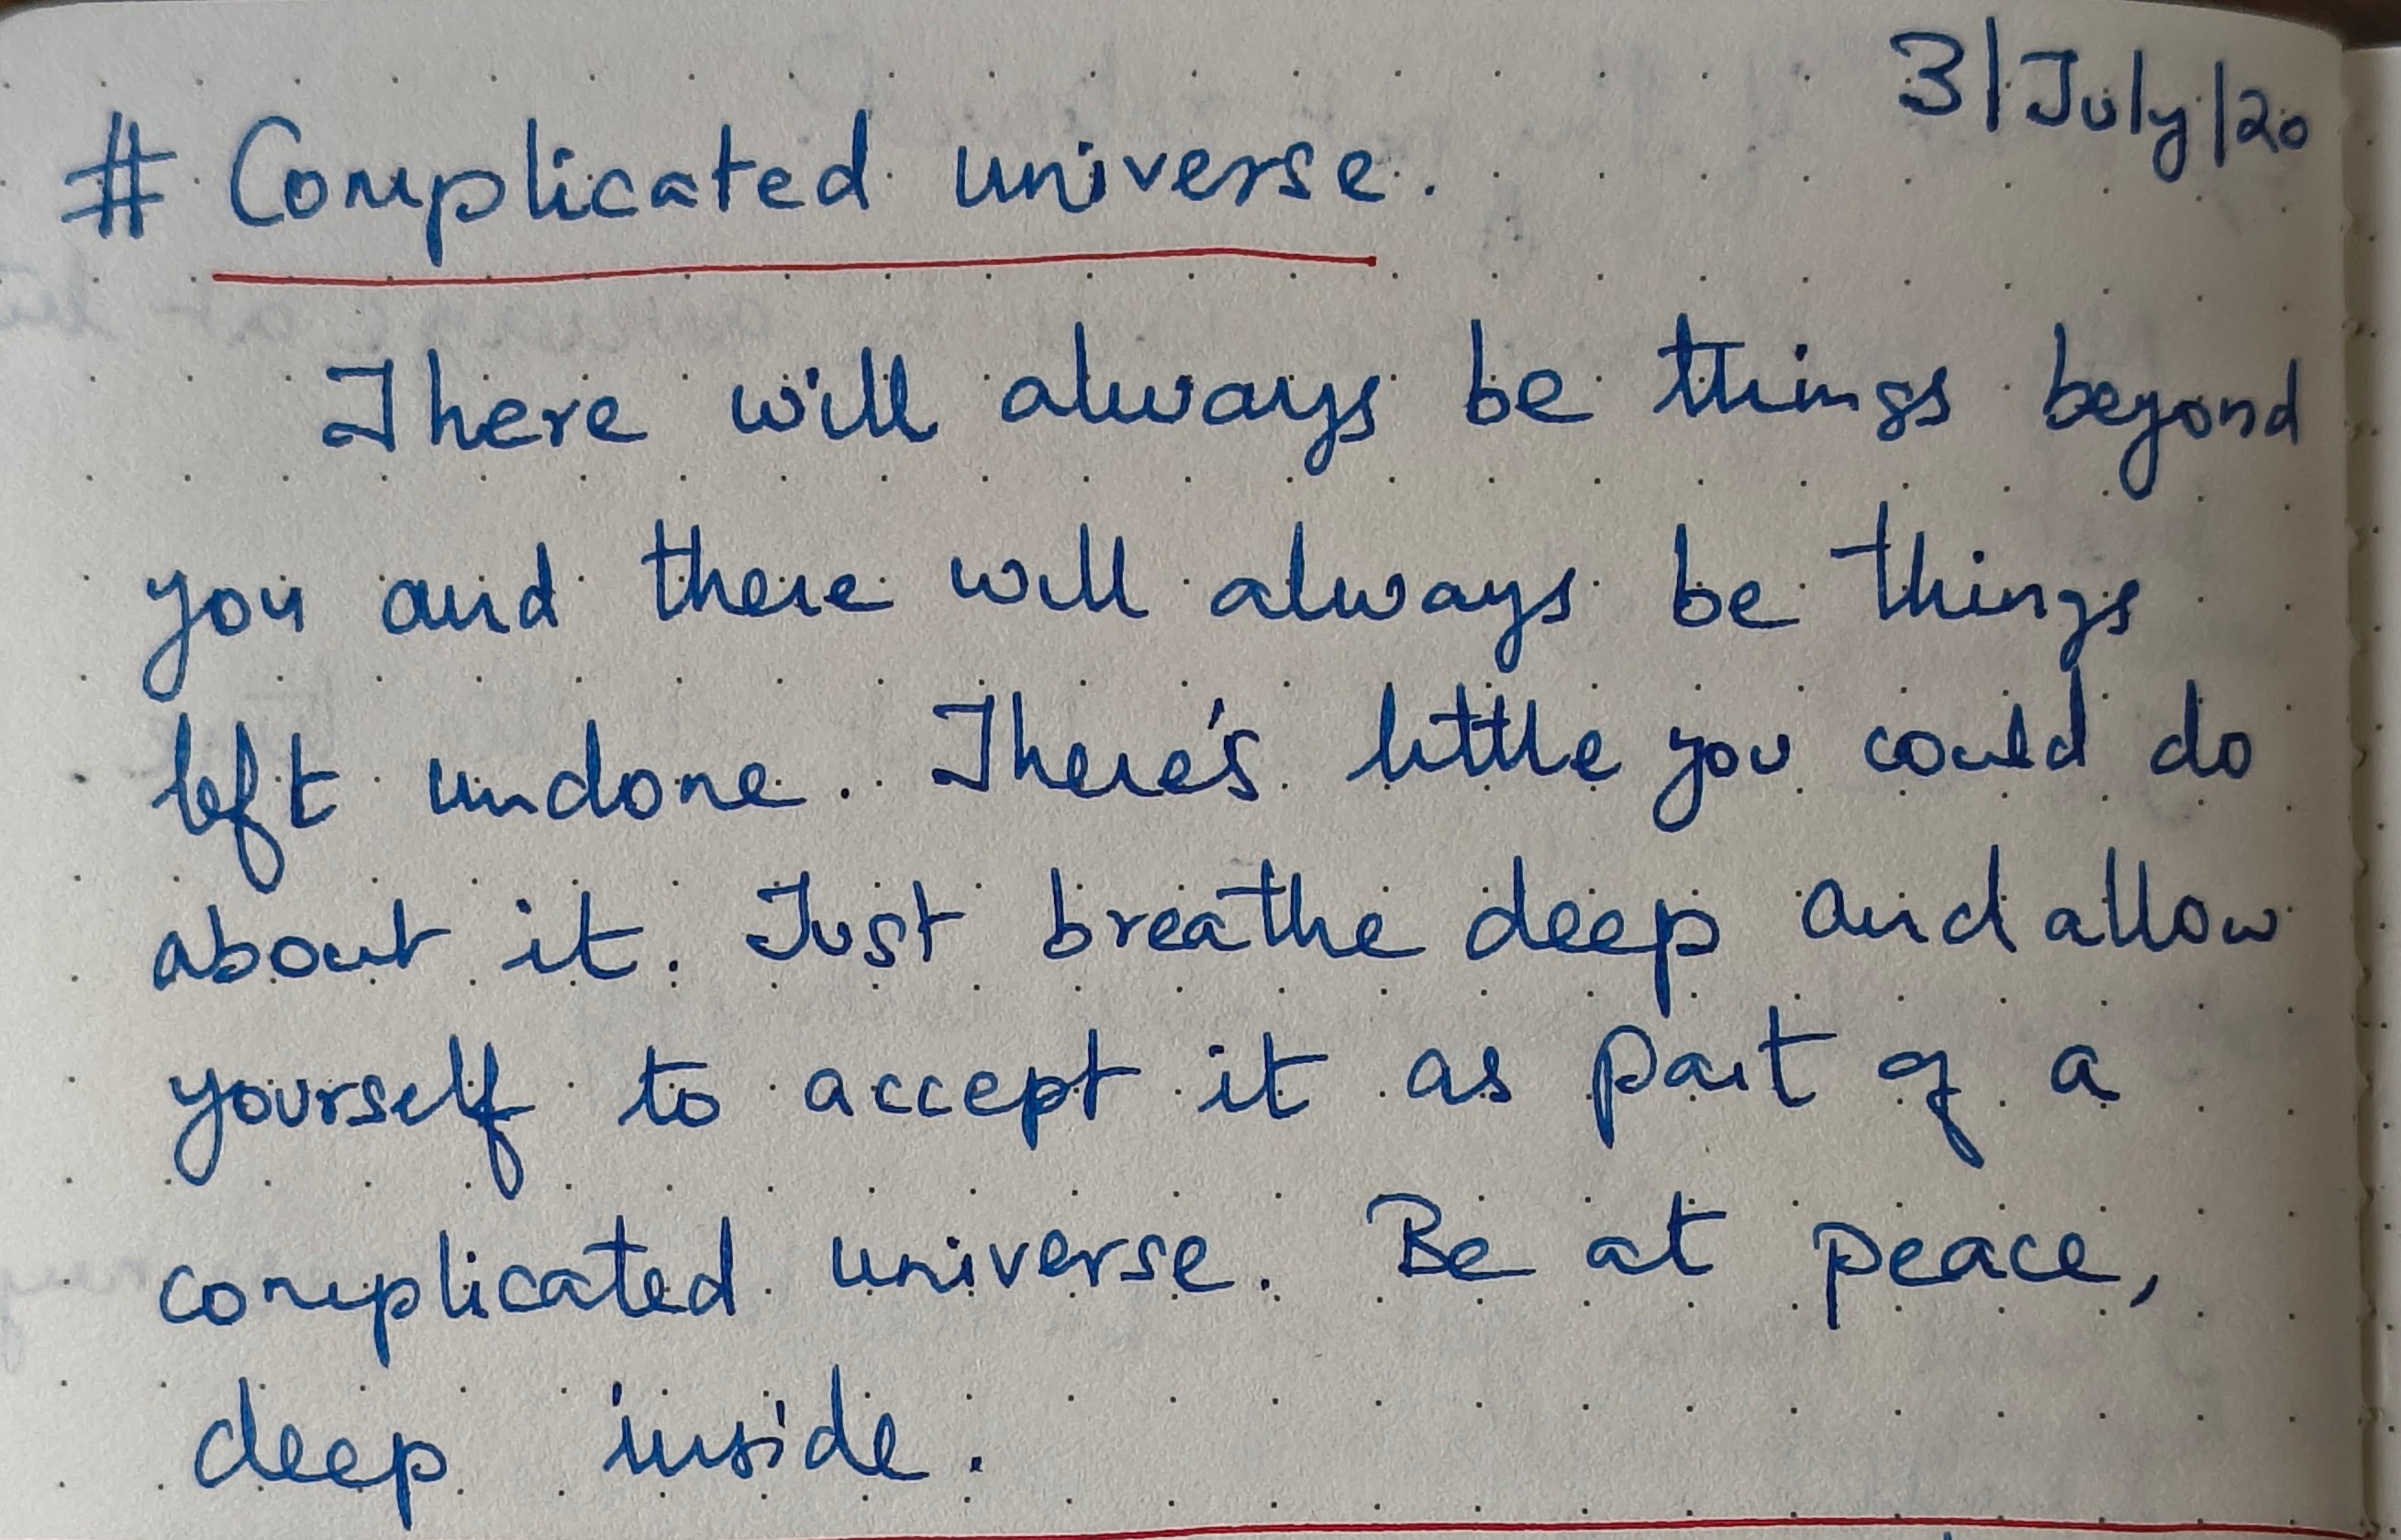 3/July/20
# Complicated universe.
There will always be things beyond
you and there will always be things
left undone. There's little you could do
about it. Just breathe deep and allow
yourself to accept it as part of a
complicated universe. Be at peace,
deep inside.